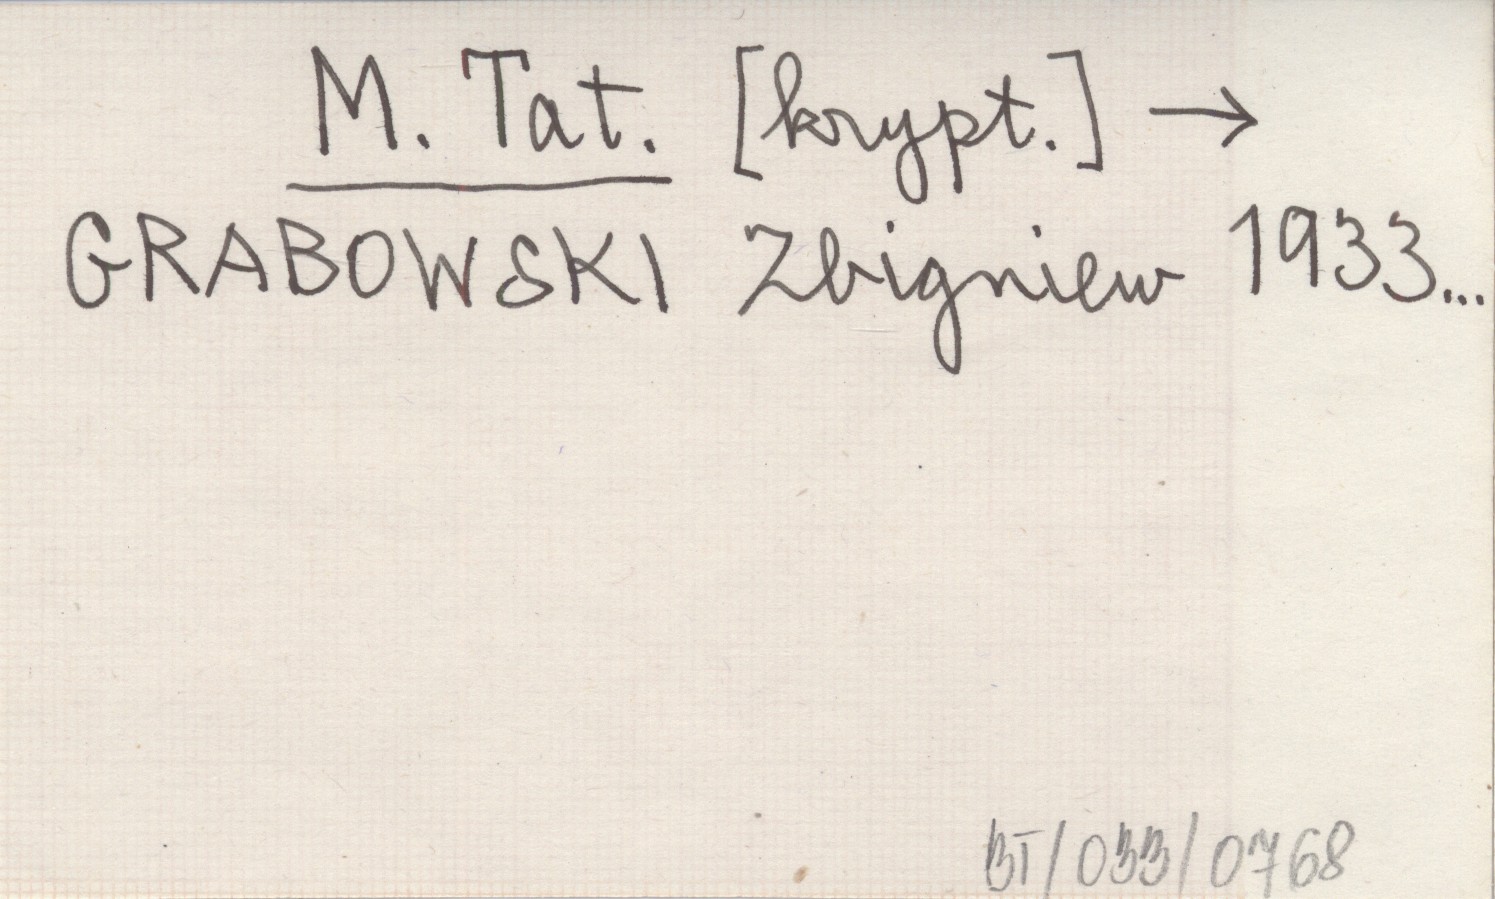 M. Tat. [krypt.] →
GRABOWSKI Zbigniew 1933...
BT/033/0768